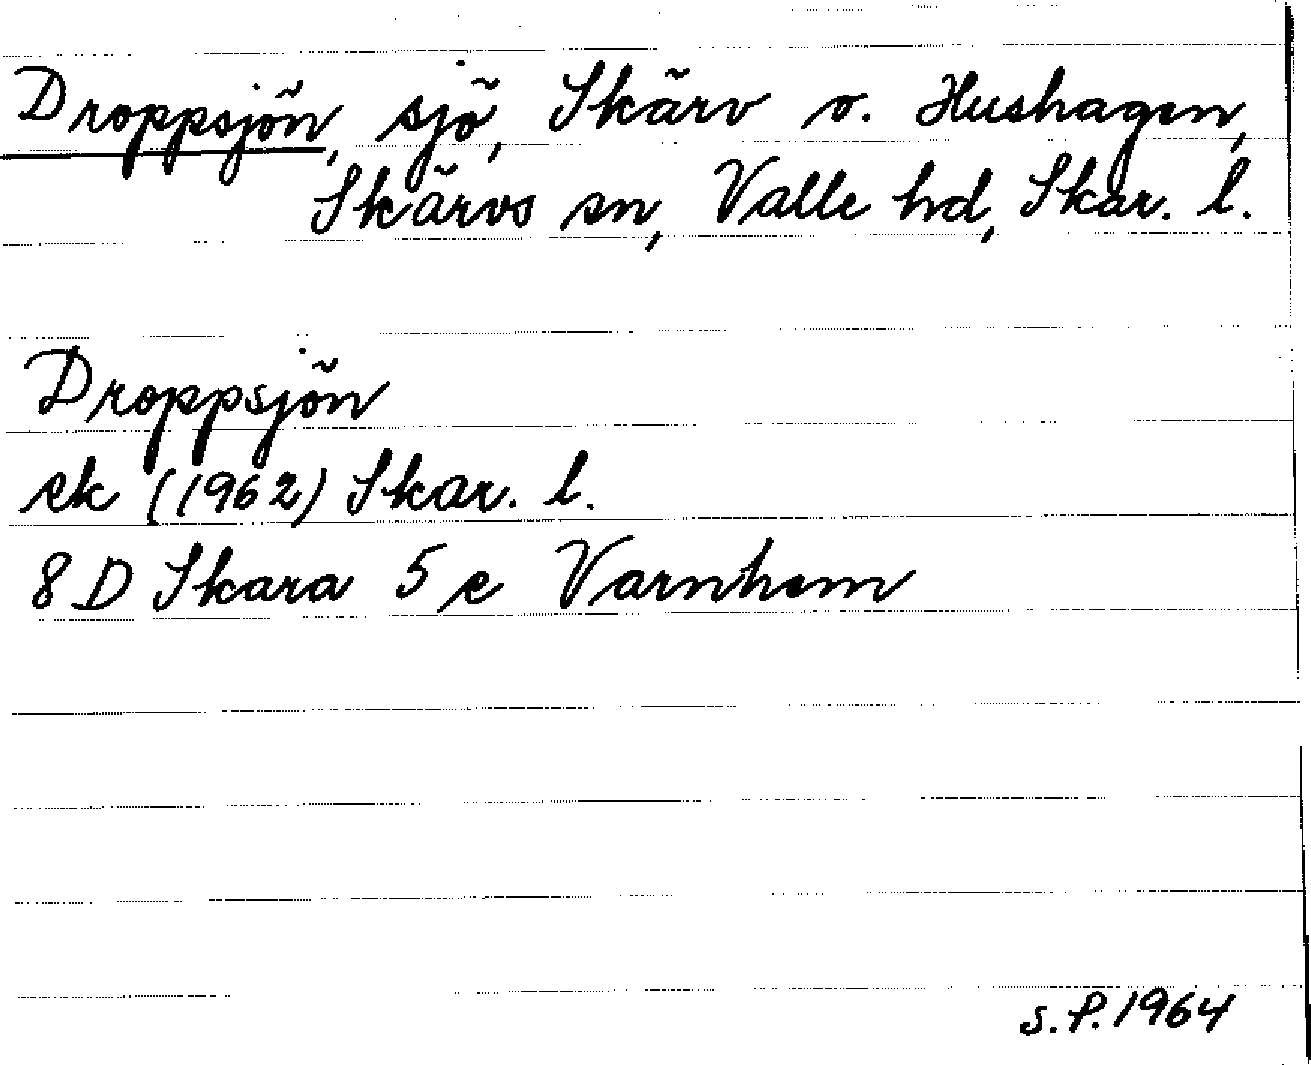 Droppsjön, sjö, Skärv o. Hushagen,
Skärvs sn, Valle hd, Skar. l.
Droppsjön
ek (1962) Skar. l.
8 D Skara 5 e Varnhem
S. P. 1964